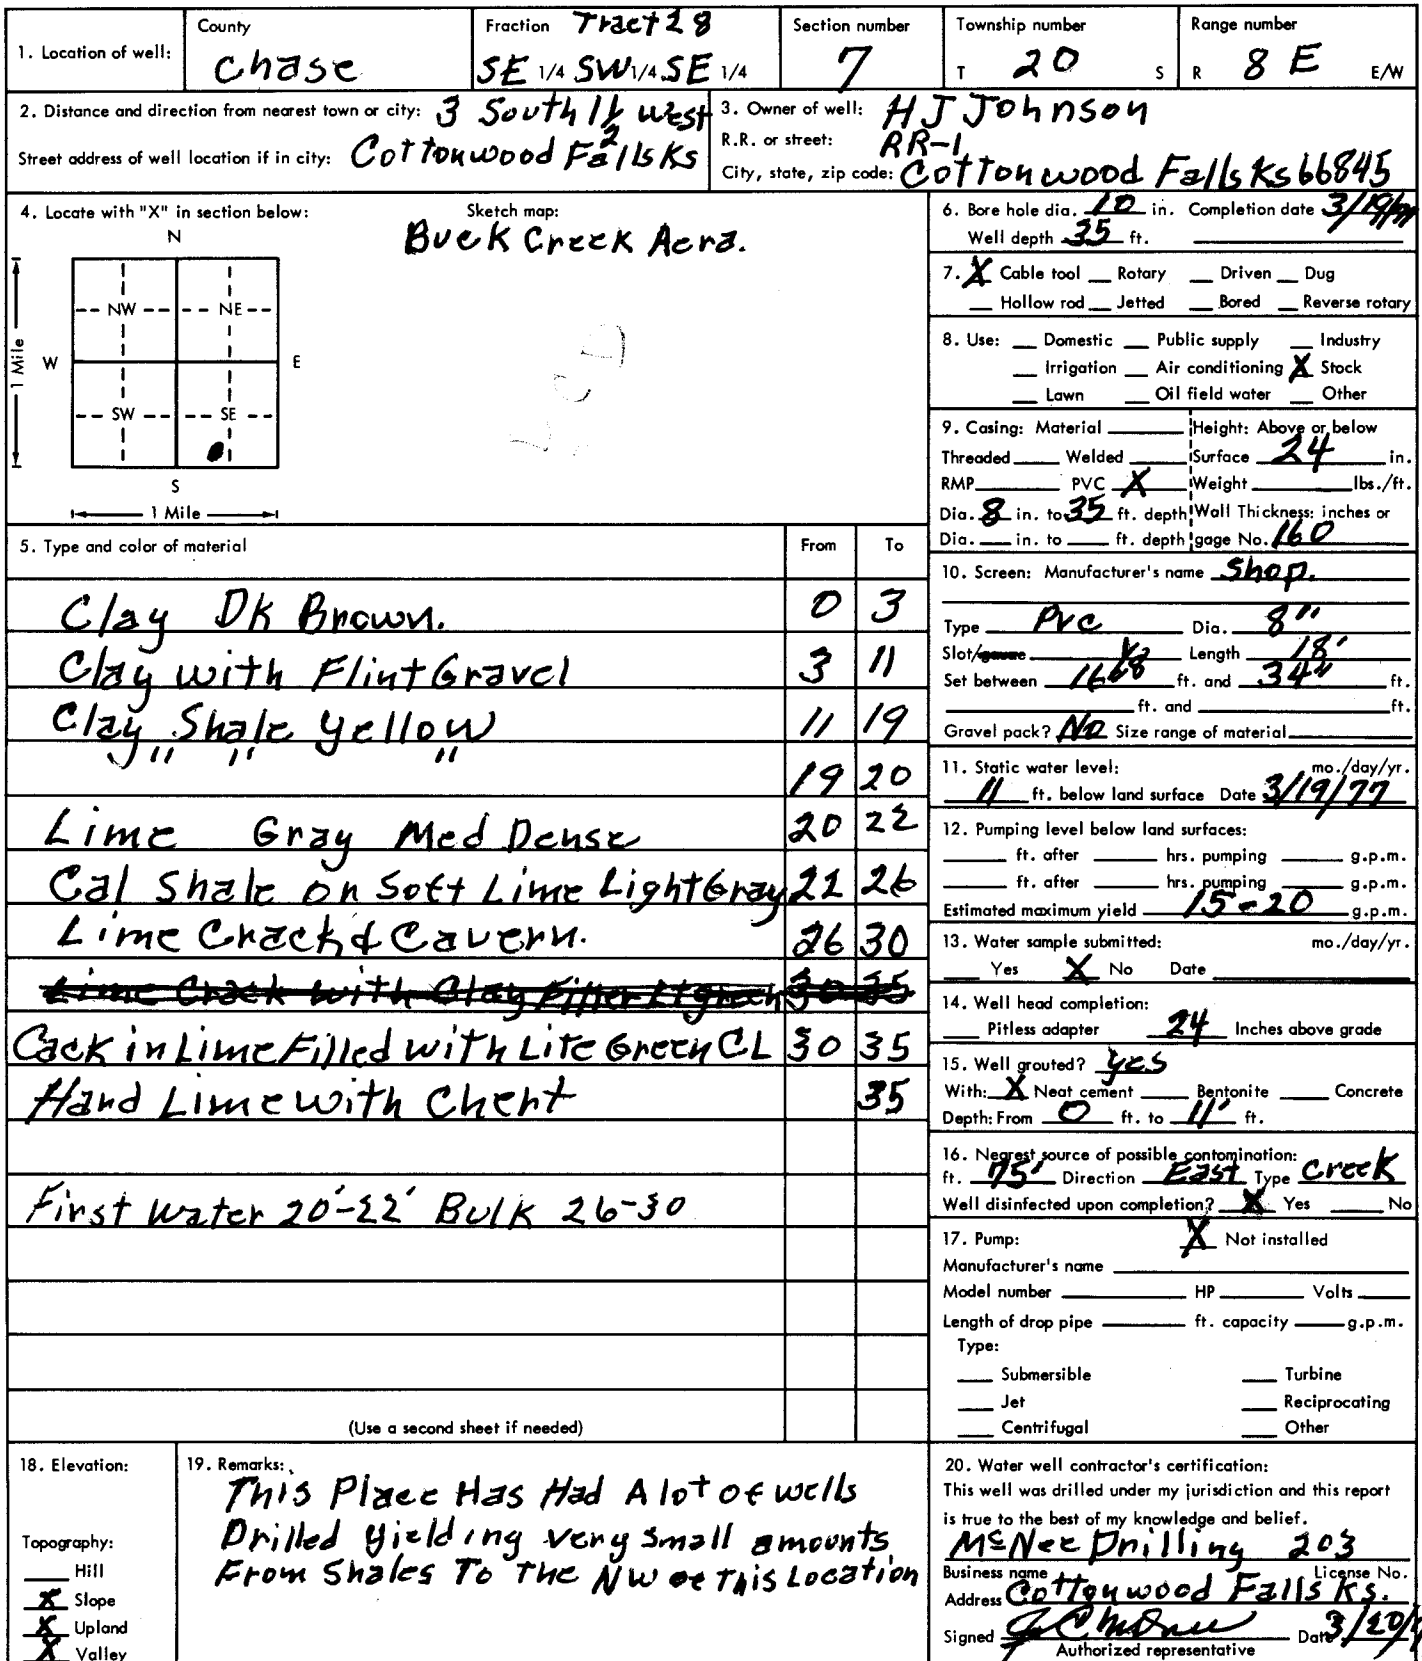 1. Location of well:
County
Chase
Fraction Tract 28
SE 1/4 SW 1/4 SE 1/4
Section number
7
Township number
T 20 S
Range number
R 8 E E/W
2. Distance and direction from nearest town or city: 3 South 1 1/2 West
Street address of well location if in city: Cottonwood Falls Ks
3. Owner of well: H J Johnson
R.R. or street: RR-1
City, state, zip code: Cottonwood Falls Ks 66845
4. Locate with "X" in section below:
Sketch map:
Buck Creek Aera.
N
NW NE
W E
1 Mile
SW SE
S
1 Mile
5. Type and color of material From To
Clay DK Brown. 0 3
Clay with Flint Gravel 3 11
Clay Shale Yellow 11 19
" " " 19 20
Lime Gray Med Dense 20 22
Cal Shale or Soft Lime Light Gray 22 26
Lime Crack & Cavern. 26 30
Lime Crack with Clay Filler Lt green 30 35
Cack in Lime Filled with Lite Green CL 30 35
Hard Lime with Chert 35
First Water 20'-22' Bulk 26-30
(Use a second sheet if needed)
6. Bore hole dia. 10 in. Completion date 3/19/77
Well depth 35 ft.
7. X Cable tool Rotary Driven Dug
Hollow rod Jetted Bored Reverse rotary
8. Use: Domestic Public supply Industry
Irrigation Air conditioning X Stock
Lawn Oil field water Other
9. Casing: Material Height: Above or below
Threaded Welded Surface 24 in.
RMP PVC X Weight lbs./ft.
Dia. 8 in. to 35 ft. depth Wall Thickness: inches or
Dia. in. to ft. depth gage No. 160
10. Screen: Manufacturer's name Shop.
Type Pvc Dia. 8"
Slot/gauze Length 18'
Set between ft. and 34 ft.
ft. and ft.
Gravel pack? No Size range of material
11. Static water level: mo./day/yr.
11 ft. below land surface Date 3/19/77
12. Pumping level below land surfaces:
ft. after hrs. pumping g.p.m.
ft. after hrs. pumping g.p.m.
Estimated maximum yield 15-20 g.p.m.
13. Water sample submitted: mo./day/yr.
Yes X No Date
14. Well head completion:
Pitless adapter 24 Inches above grade
15. Well grouted? Yes
With: X Neat cement Bentonite Concrete
Depth: From 0 ft. to 11' ft.
16. Nearest source of possible contomination:
ft. 75' Direction East Type Creek
Well disinfected upon completion? X Yes No
17. Pump: X Not installed
Manufacturer's name
Model number HP Volts
Length of drop pipe ft. capacity g.p.m.
Type:
Submersible Turbine
Jet Reciprocating
Centrifugal Other
18. Elevation:
Topography:
Hill
X Slope
X Upland
X Valley
19. Remarks:
This Place Has Had A lot of wells
Drilled yielding very small amounts
From Shales To The NW of This Location
20. Water well contractor's certification:
This well was drilled under my jurisdiction and this report
is true to the best of my knowledge and belief.
McNee Drilling 203
Business name License No.
Address Cottonwood Falls Ks.
Signed Date 3/20/
Authorized representative